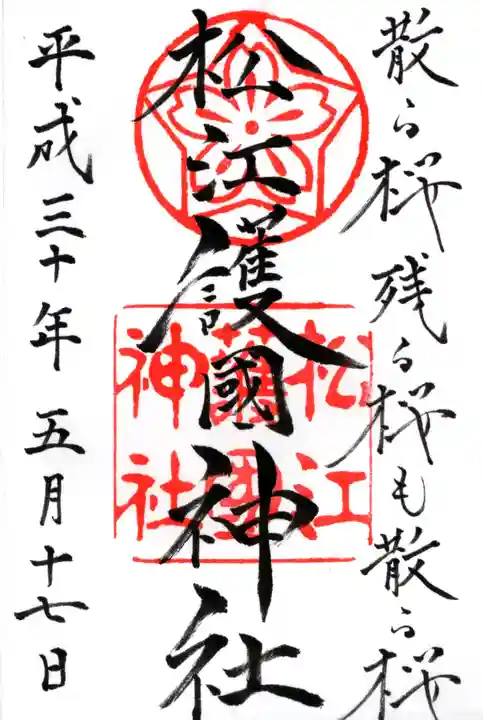 散る桜残る桜も散る桜
松江護國神社
松江
護國
神社
平成三十年五月十七日